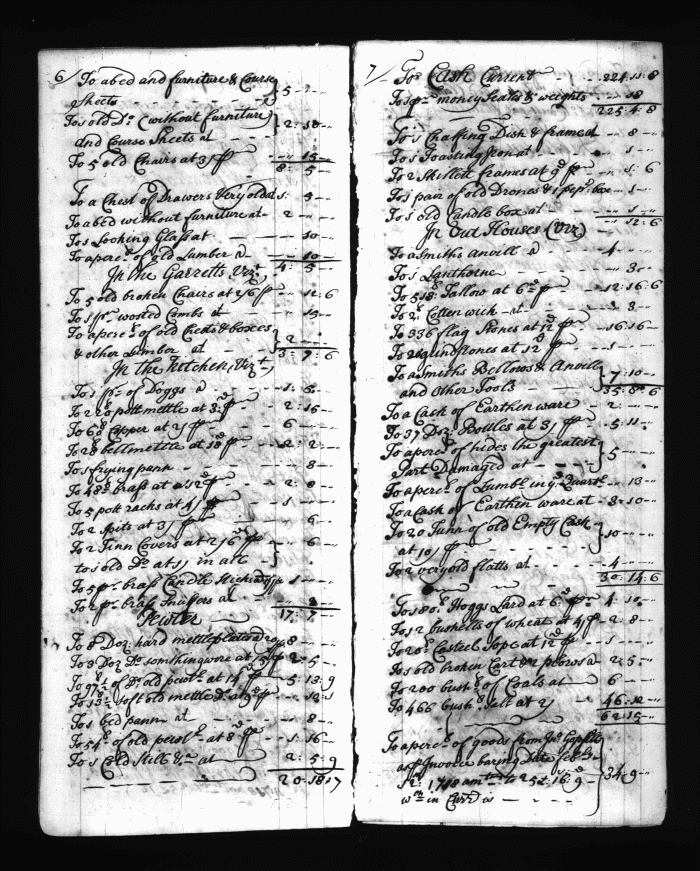 6/ To a bed and furniture & Course
Sheets - - - - 5 - -
To 1 old Do. (without furniture)
and Course Sheets at - 2: 10 -
To 5 old Chairs at 3/ pr - - 15 -
8: 5 -
To a Chest of Drawers Very old at 1: 5 -
To a bed without furniture at - 2 - -
To 1 Looking Glass at - - 10 -
To a percel of old Lumber a - - 10 -
4: 5 -
In the Garretts Vizt.
To 5 old broken Chairs at 2/6 pr - 12: 6
To 1 pr. worsted Combs at - 15 -
To a percel of old Chests & boxes
& other Lumber at - 2 - -
3: 7: 6
In the Kitchen, Vizt.
To 1 pr. of Doggs a - - 1: 6
To 220 pott mettle at 3d pr - 2: 15 -
To 60 Copper at 2/ pr - 6 -
To 28 bell mettle at 18d pr - 2: 2 -
To 1 frying pann - - 8
To 48 brass at a 12d pr - 2: 8 -
To 5 pott racks at 4/ pr - 1 - -
To 2 Spits at 3/ pr - - 6 -
To 2 Tinn Covers at 2/6 pr
to 1 old Do. at 1/ in all - 6 -
To 5 pr. brass Candle Sticks - 1 -
To 2 pr. brass Snuffers at - - 3 -
17: 7
Pewter
To 8 Doz: hard mettle plates 8 -
To 3 Doz Do. something wore at 15/ pr 2: 5 -
To 97 1/2 of Do. old pewtr. at 14d pr - 5: 13: 9
To 13 1/2 soft old mettle Do. at
To 1 bed pann at - - 8 -
To 54 of old pewtr. at 8d pr - 1: 16 -
To 1 Cold Still &ca at - 2: 5: 9
20: 18
7/ To Cash Current - 224: 11: 8
To 1 pr. money Scales & weights - 13
225: 4: 8
To 1 Chaffing Dish & frame at - 8 -
To 1 Toasting Iron at - 1 -
To 2 Skillett frames at 9d pr - 1: 6
To 1 pair of old Drones & 1 box - 1 -
To 1 old Candle box at - - 1 -
12: 6
In Out Houses (Vizt)
To a Smiths Anvill a - 4 - -
To 1 Lanthorne - - 3 -
To 518 Tallow at 6d pr - 12: 16: 6
To 2 Cotten wick at - 3 -
To 336 flag Stones at 12d pr - 16: 16 -
To 20 grindstones at 12d pr - 1 -
To a Smiths Bellows & Anvill
and Other Tools - 7: 10 -
35: 8: 6
To a Cask of Earthen ware - 2 - -
To 37 Doz: Bottles at 3/ pr - 5: 11 -
To a percel of hides the greatest
Part Damaged at - 5 - -
To a percel of Lumbr. in ye Quartr. - 13 -
To a Cask of Earthen ware at - 3: 10 -
To 20 Tunn of old Empty Cask
at 10/ pr - 10 - -
To 2 very old flatts at - 4 - -
30: 14: 6
To 180 Hoggs Lard at 6d pr - 4: 10 -
To 12 bushells of wheat at 4/ pr - 2: 8 -
To 20 Casteel Sope at 12d pr - 1 -
To 1 old broken Cart & 2 plows a - 2: 5 -
To 200 bush. of Coals at - 6 - -
To 466 bush. Salt at 2/ - 46: 12 -
62: 15 -
To a percel of goods from
as pr Invoice baring Date
1718 amtg. to 25£: 16: 9 -
wch. in Currt. is - - 34: 9 -